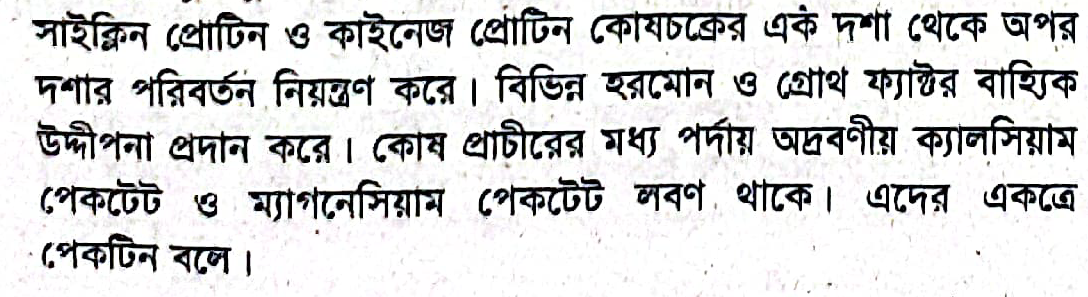 সাইক্লিন প্রোটিন ও কাইনেজ প্রোটিন কোষচক্রের এক দশা থেকে অপর
দশার পরিবর্তন নিয়ন্ত্রণ করে। বিভিন্ন হরমোন ও গ্রোথ ফ্যাক্টর বাহ্যিক
উদ্দীপনা প্রদান করে। কোষ প্রাচীরের মধ্য পর্দায় অদ্রবণীয় ক্যালসিয়াম
পেকটেট ও ম্যাগনেসিয়াম পেকটেট লবণ থাকে। এদের একত্রে
পেকটিন বলে।